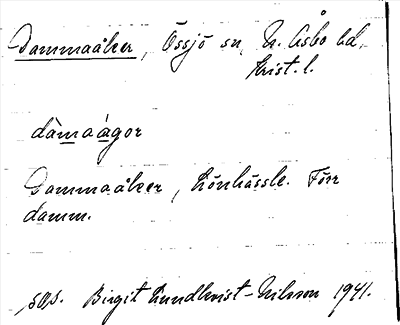 Dammaåker, Össjö sn, N. Åsbo hd,
Krist. l.
dàmaágor
Dammaåker, Lönhässle. Förr
damm.
sgs. Birgit Lundkvist-Nilsson 1941.